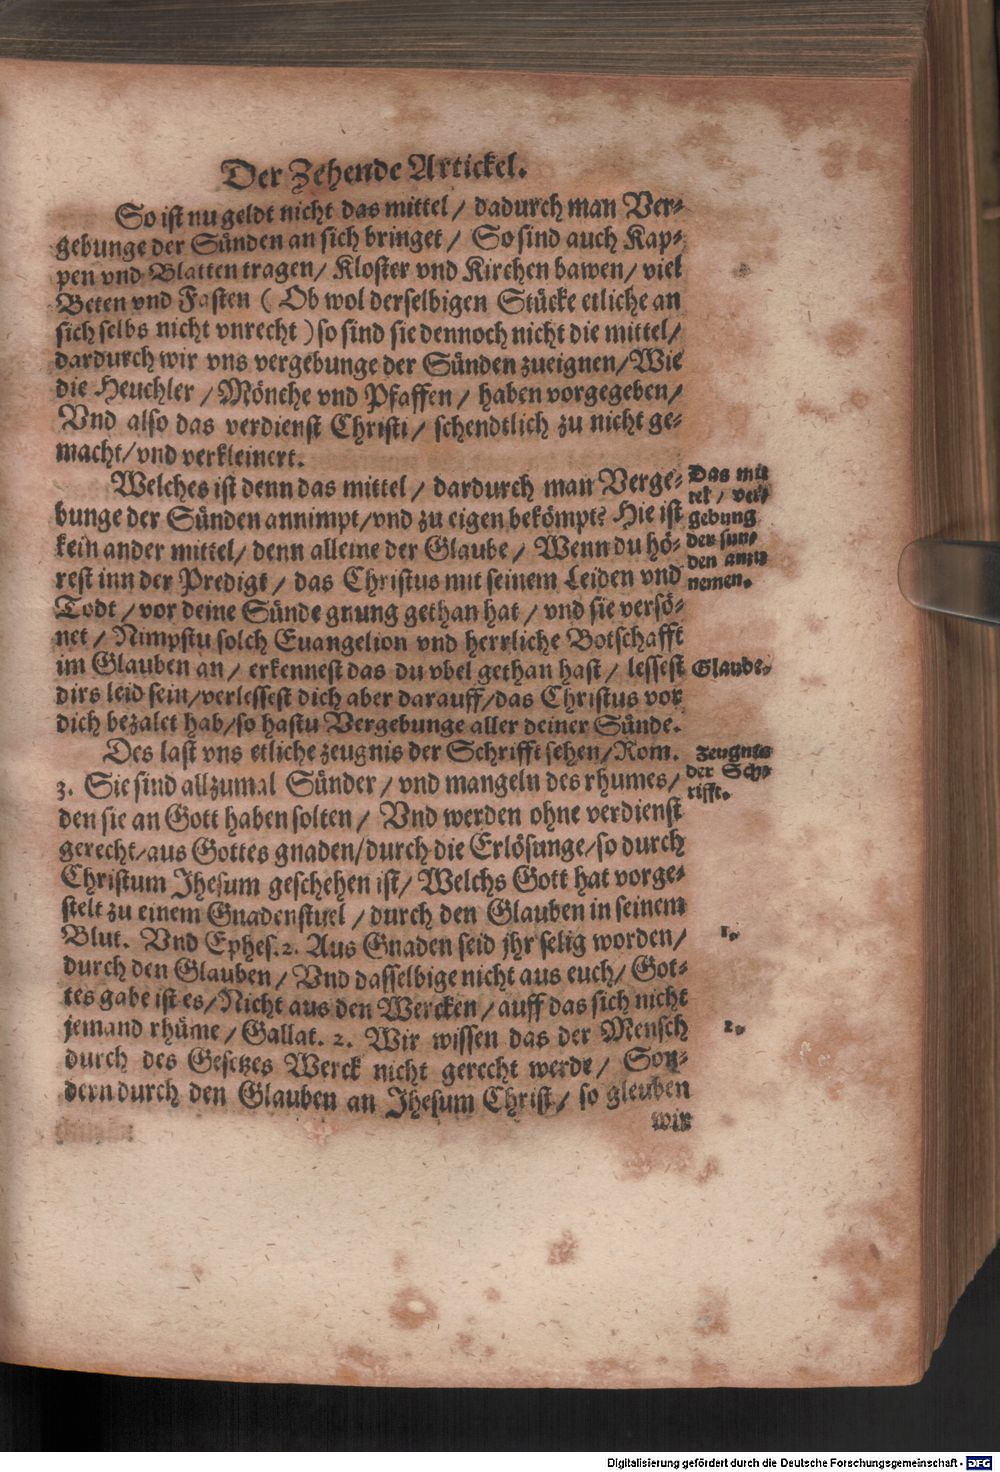 Der Zehende Artickel.
So ist nu geldt nicht das mittel / dadurch man Ver-
gebunge der Sünden an sich bringet / So sind auch Kap-
pen vnd Blatten tragen / Kloster vnd Kirchen bawen / viel
Beten vnd Fasten ( Ob wol derselbigen Stücke etliche an
sich selbs nicht vnrecht ) so sind sie dennoch nicht die mittel /
dardurch wir vns vergebunge der Sünden zueignen / Wie
die Heuchler / Mönche vnd Pfaffen / haben vorgegeben /
Vnd also das verdienst Christi / schendtlich zu nicht ge-
macht / vnd verkleinert.
Welches ist denn das mittel / dardurch man Verge-
bunge der Sünden annimpt / vnd zu eigen bekömpt? Hie ist
kein ander mittel / denn alleine der Glaube / Wenn du hö-
rest inn der Predigt / das Christus mit seinem Leiden vnd
Todt / vor deine Sünde gnung gethan hat / vnd sie versö-
net / Nimpstu solch Euangelion vnd herrliche Botschafft
im Glauben an / erkennest das du vbel gethan hast / lessest
dirs leid sein / verlessest dich aber darauff / das Christus vor
dich bezalet hab / so hastu Vergebunge aller deiner Sünde.
Des last vns etliche zeugnis der Schrifft sehen / Rom.
3. Sie sind allzumal Sünder / vnd mangeln des rhumes /
den sie an Gott haben solten / Vnd werden ohne verdienst
gerecht / aus Gottes gnaden / durch die Erlösunge / so durch
Christum Jhesum geschehen ist / Welchs Gott hat vorge-
stelt zu einem Gnadenstuel / durch den Glauben in seinem
Blut. Vnd Ephes. 2. Aus Gnaden seid jhr selig worden /
durch den Glauben / Vnd dasselbige nicht aus euch / Got-
tes gabe ist es / Nicht aus den Wercken / auff das sich nicht
jemand rhüme / Gallat. 2. Wir wissen das der Mensch
durch des Gesetzes Werck nicht gerecht werde / Son-
dern durch den Glauben an Jhesum Christ / so gleuben
wir
Das mit
tel / ver-
gebung
der sun-
den anzu
nemen.
Glaube.
Zeugnis
der Sch-
rifft.
1.
2.
Digitalisierung gefördert durch die Deutsche Forschungsgemeinschaft - DFG